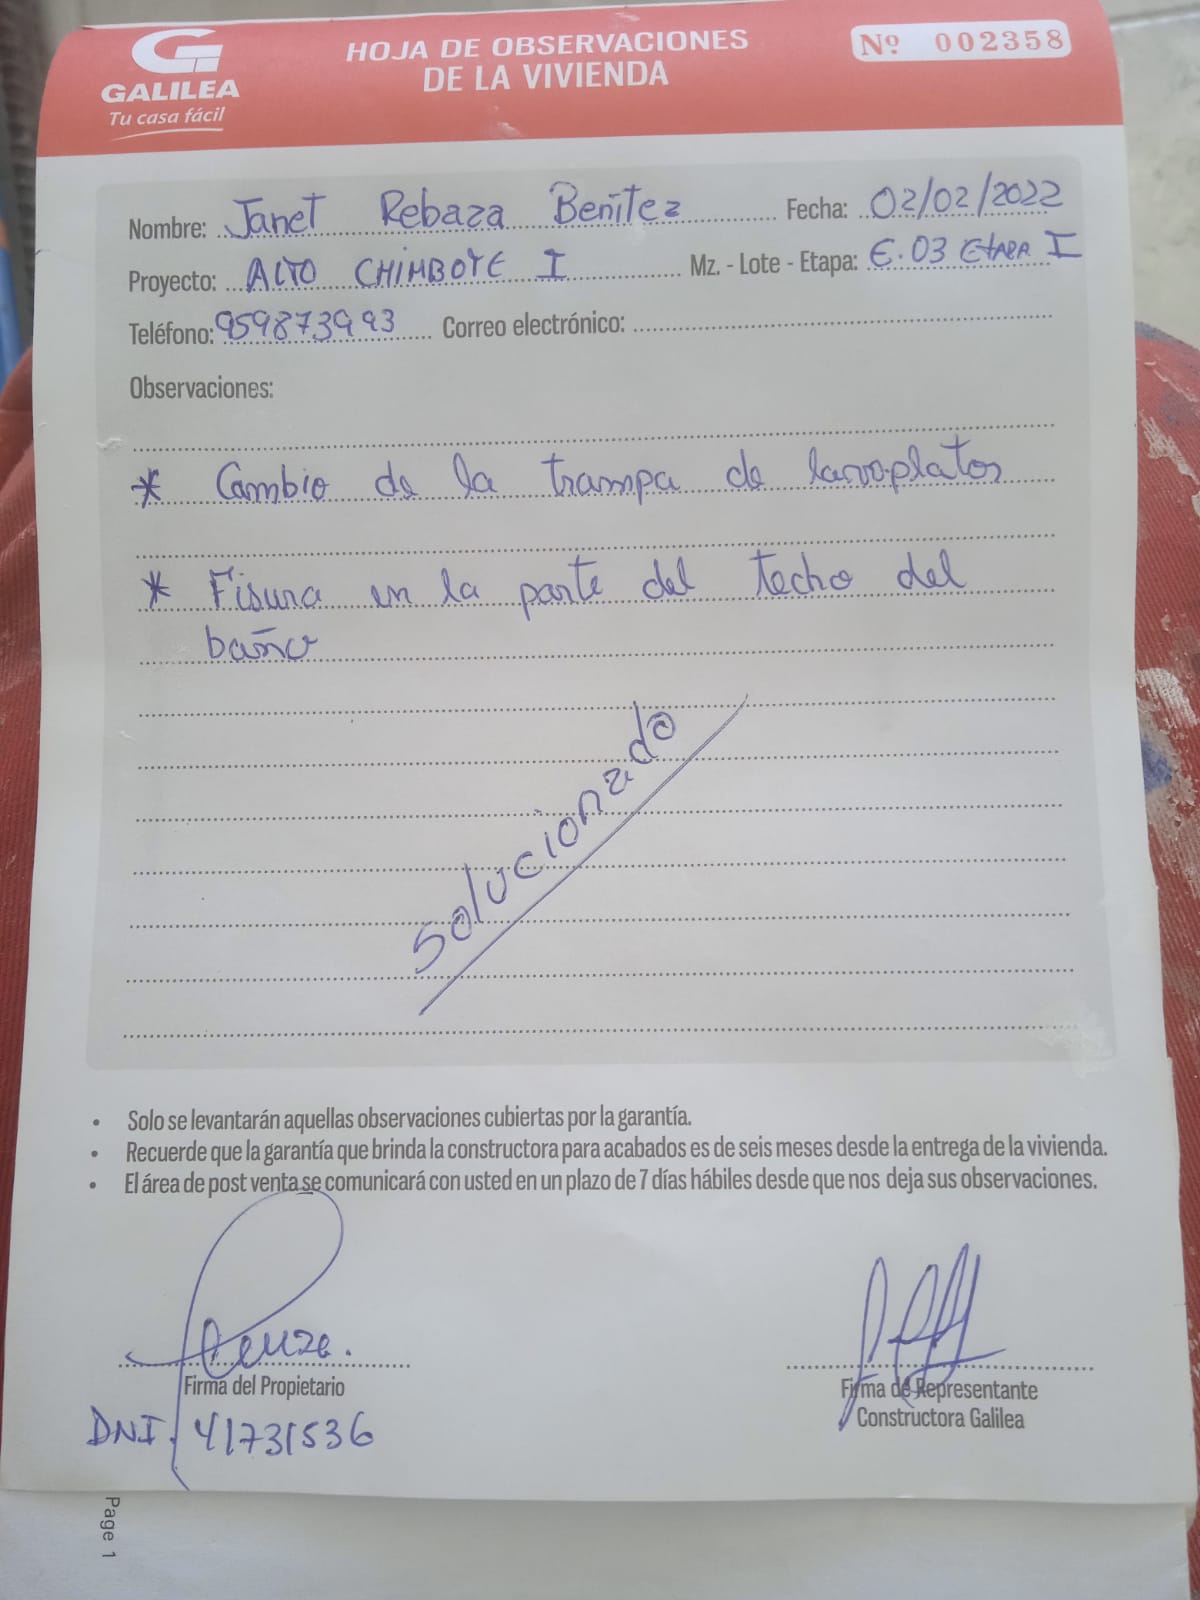 GALILEA
Tu casa fácil
HOJA DE OBSERVACIONES
DE LA VIVIENDA
Nº 002358
Nombre: Janet Rebaza Benítez Fecha: 02/02/2022
Proyecto: ALTO CHIMBOTE I Mz. - Lote - Etapa: E.03 ETAPA I
Teléfono: 959873993 Correo electrónico:
Observaciones:
* Cambio de la trampa de lavoplatos
* Fisura en la parte del techo del
baño
solucionado
• Solo se levantarán aquellas observaciones cubiertas por la garantía.
• Recuerde que la garantía que brinda la constructora para acabados es de seis meses desde la entrega de la vivienda.
• El área de post venta se comunicará con usted en un plazo de 7 días hábiles desde que nos deja sus observaciones.
Firma del Propietario
Firma de Representante
Constructora Galilea
DNI. 41731536
Page 1